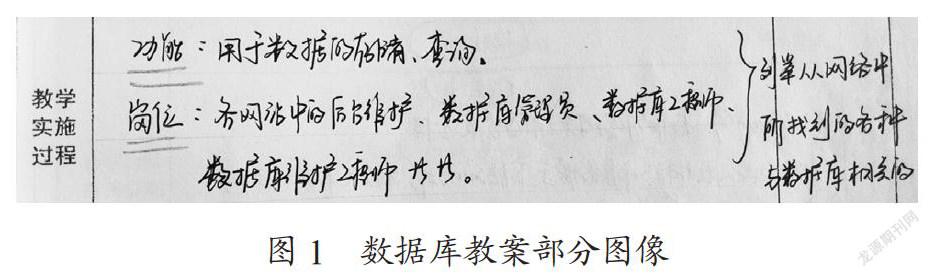 教学
实施
过程
功能：用于数据的存储、查询。
岗位：各网站中的后台维护、数据库管理员、数据库工程师、
数据库维护工程师 等等。
列举从网络中
所找到的各种
与数据库相关的
图 1 数据库教案部分图像
龙源期刊网